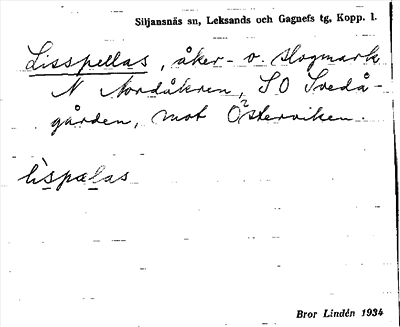 Siljansnäs sn, Leksands och Gagnefs tg, Kopp. l.
Lisspellas, åker- o. slogmark
N Nordåkern, SO Svedå-
gården, mot Österviken.
lìspælas
Bror Lindén 1934